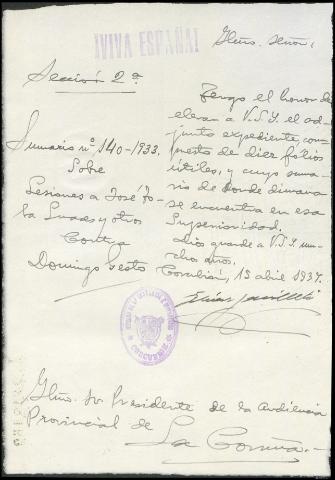 ¡VIVA ESPAÑA!
Iltmo. Señor:
Sección 2ª
Sumario nº 140-1933.
Sobre
Lesiones a José
y otros
Contra
Domingo Gesto
Tengo el honor de
elevar a V.S.I. el ad-
junto expediente, com-
puesto de diez folios
útiles, y cuyo suma-
rio de donde dimana
se encuentra en esa
Superioridad.
Dios guarde a V.S.I. mu-
chos años.
Corcubión, 15 abril 1937.
CORCUBIÓN
Iltmo. Sr. Presidente de la Audiencia
Provincial de
La Coruña.-